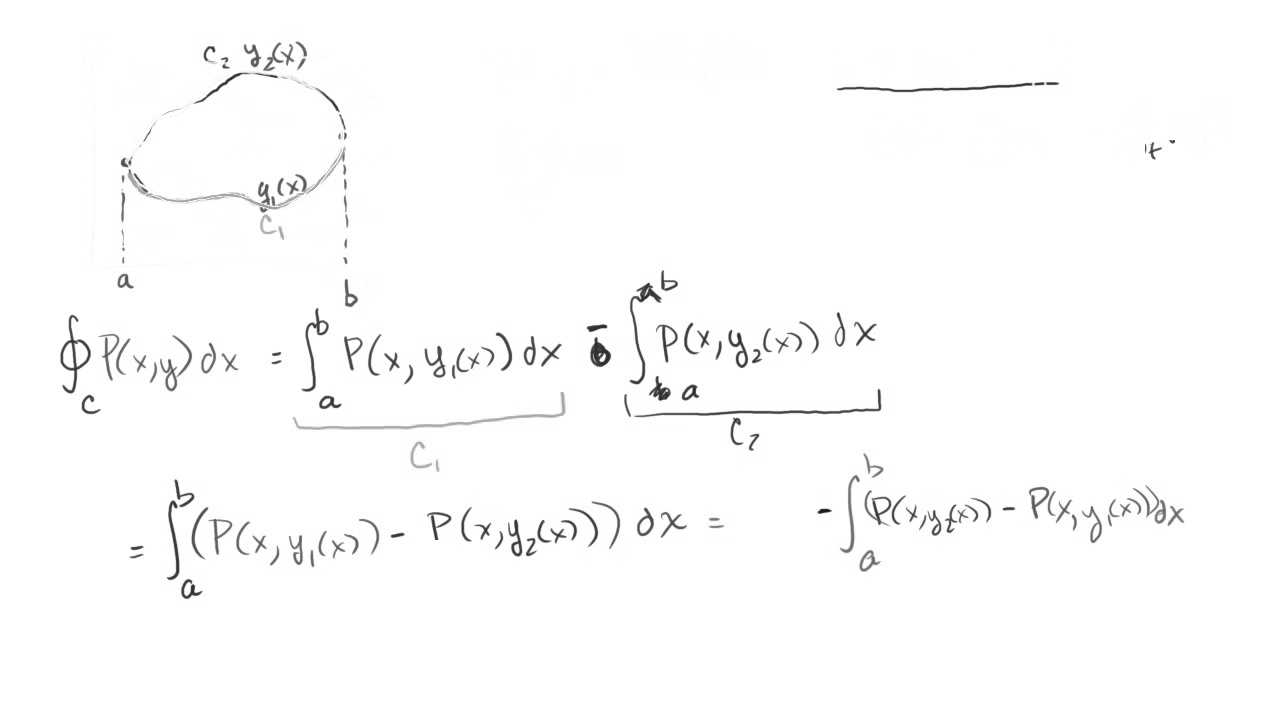 C₂ y₂(x)
y₁(x)
C₁
a b
∮_C P(x,y) dx = ∫_a^b P(x, y₁(x)) dx - ∫_a^b P(x, y₂(x)) dx
C₁ C₂
= ∫_a^b (P(x, y₁(x)) - P(x, y₂(x))) dx = - ∫_a^b (P(x, y₂(x)) - P(x, y₁(x))) dx